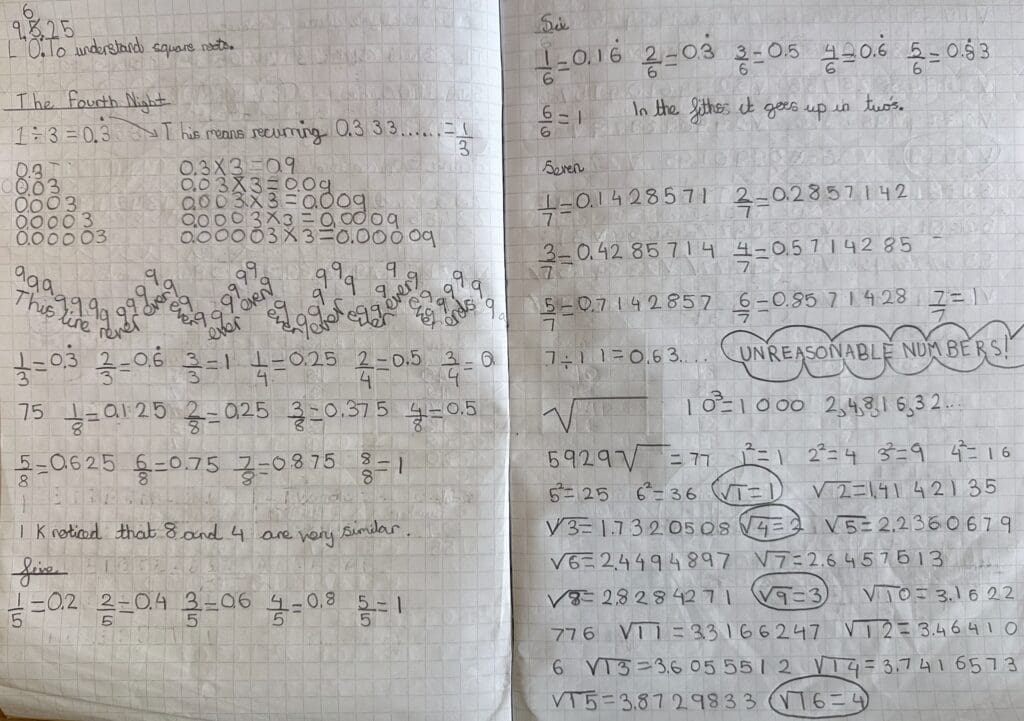 6
9,8,25
L O: To understand square roots.
The Fourth Night
1 ÷ 3 = 0.3̇ → This means recurring 0.3 33...... = 1/3
0.3
0.03 0.3 × 3 = 0.9
0.003 0.03 × 3 = 0.09
0.0003 0.003 × 3 = 0.009
0.00003 0.0003 × 3 = 0.0009
0.00003 × 3 = 0.00009
999 9999 999 999 999 999 999
This line never ever ever ever ever ever ever ever ever ends
1/3 = 0.3̇ 2/3 = 0.6̇ 3/3 = 1 1/4 = 0.25 2/4 = 0.5 3/4 = 0
75 1/8 = 0.125 2/8 = 0.25 3/8 = 0.375 4/8 = 0.5
5/8 = 0.625 6/8 = 0.75 7/8 = 0.875 8/8 = 1
I K noticed that 8 and 4 are very similar.
five
1/5 = 0.2 2/5 = 0.4 3/5 = 0.6 4/5 = 0.8 5/5 = 1
Six
1/6 = 0.16̇ 2/6 = 0.3̇ 3/6 = 0.5 4/6 = 0.6̇ 5/6 = 0.8̇3
6/6 = 1 In the fithes it goes up in two's.
Seven
1/7 = 0.1428571 2/7 = 0.2857142
3/7 = 0.4285714 4/7 = 0.5714285
5/7 = 0.7142857 6/7 = 0.8571428 7/7 = 1
7 ÷ 11 = 0.63... UNREASONABLE NUMBERS!
√ 10³ = 1000 2,4,8,16,32...
5929√ = 77 1² = 1 2² = 4 3² = 9 4² = 16
5² = 25 6² = 36 √1 = 1 √2 = 1.4142135
√3 = 1.7320508 √4 = 2 √5 = 2.2360679
√6 = 2.4494897 √7 = 2.6457513
√8 = 2.8284271 √9 = 3 √10 = 3.1622
776 √11 = 3.3166247 √12 = 3.46410
6 √13 = 3.6055512 √14 = 3.7416573
√15 = 3.8729833 √16 = 4